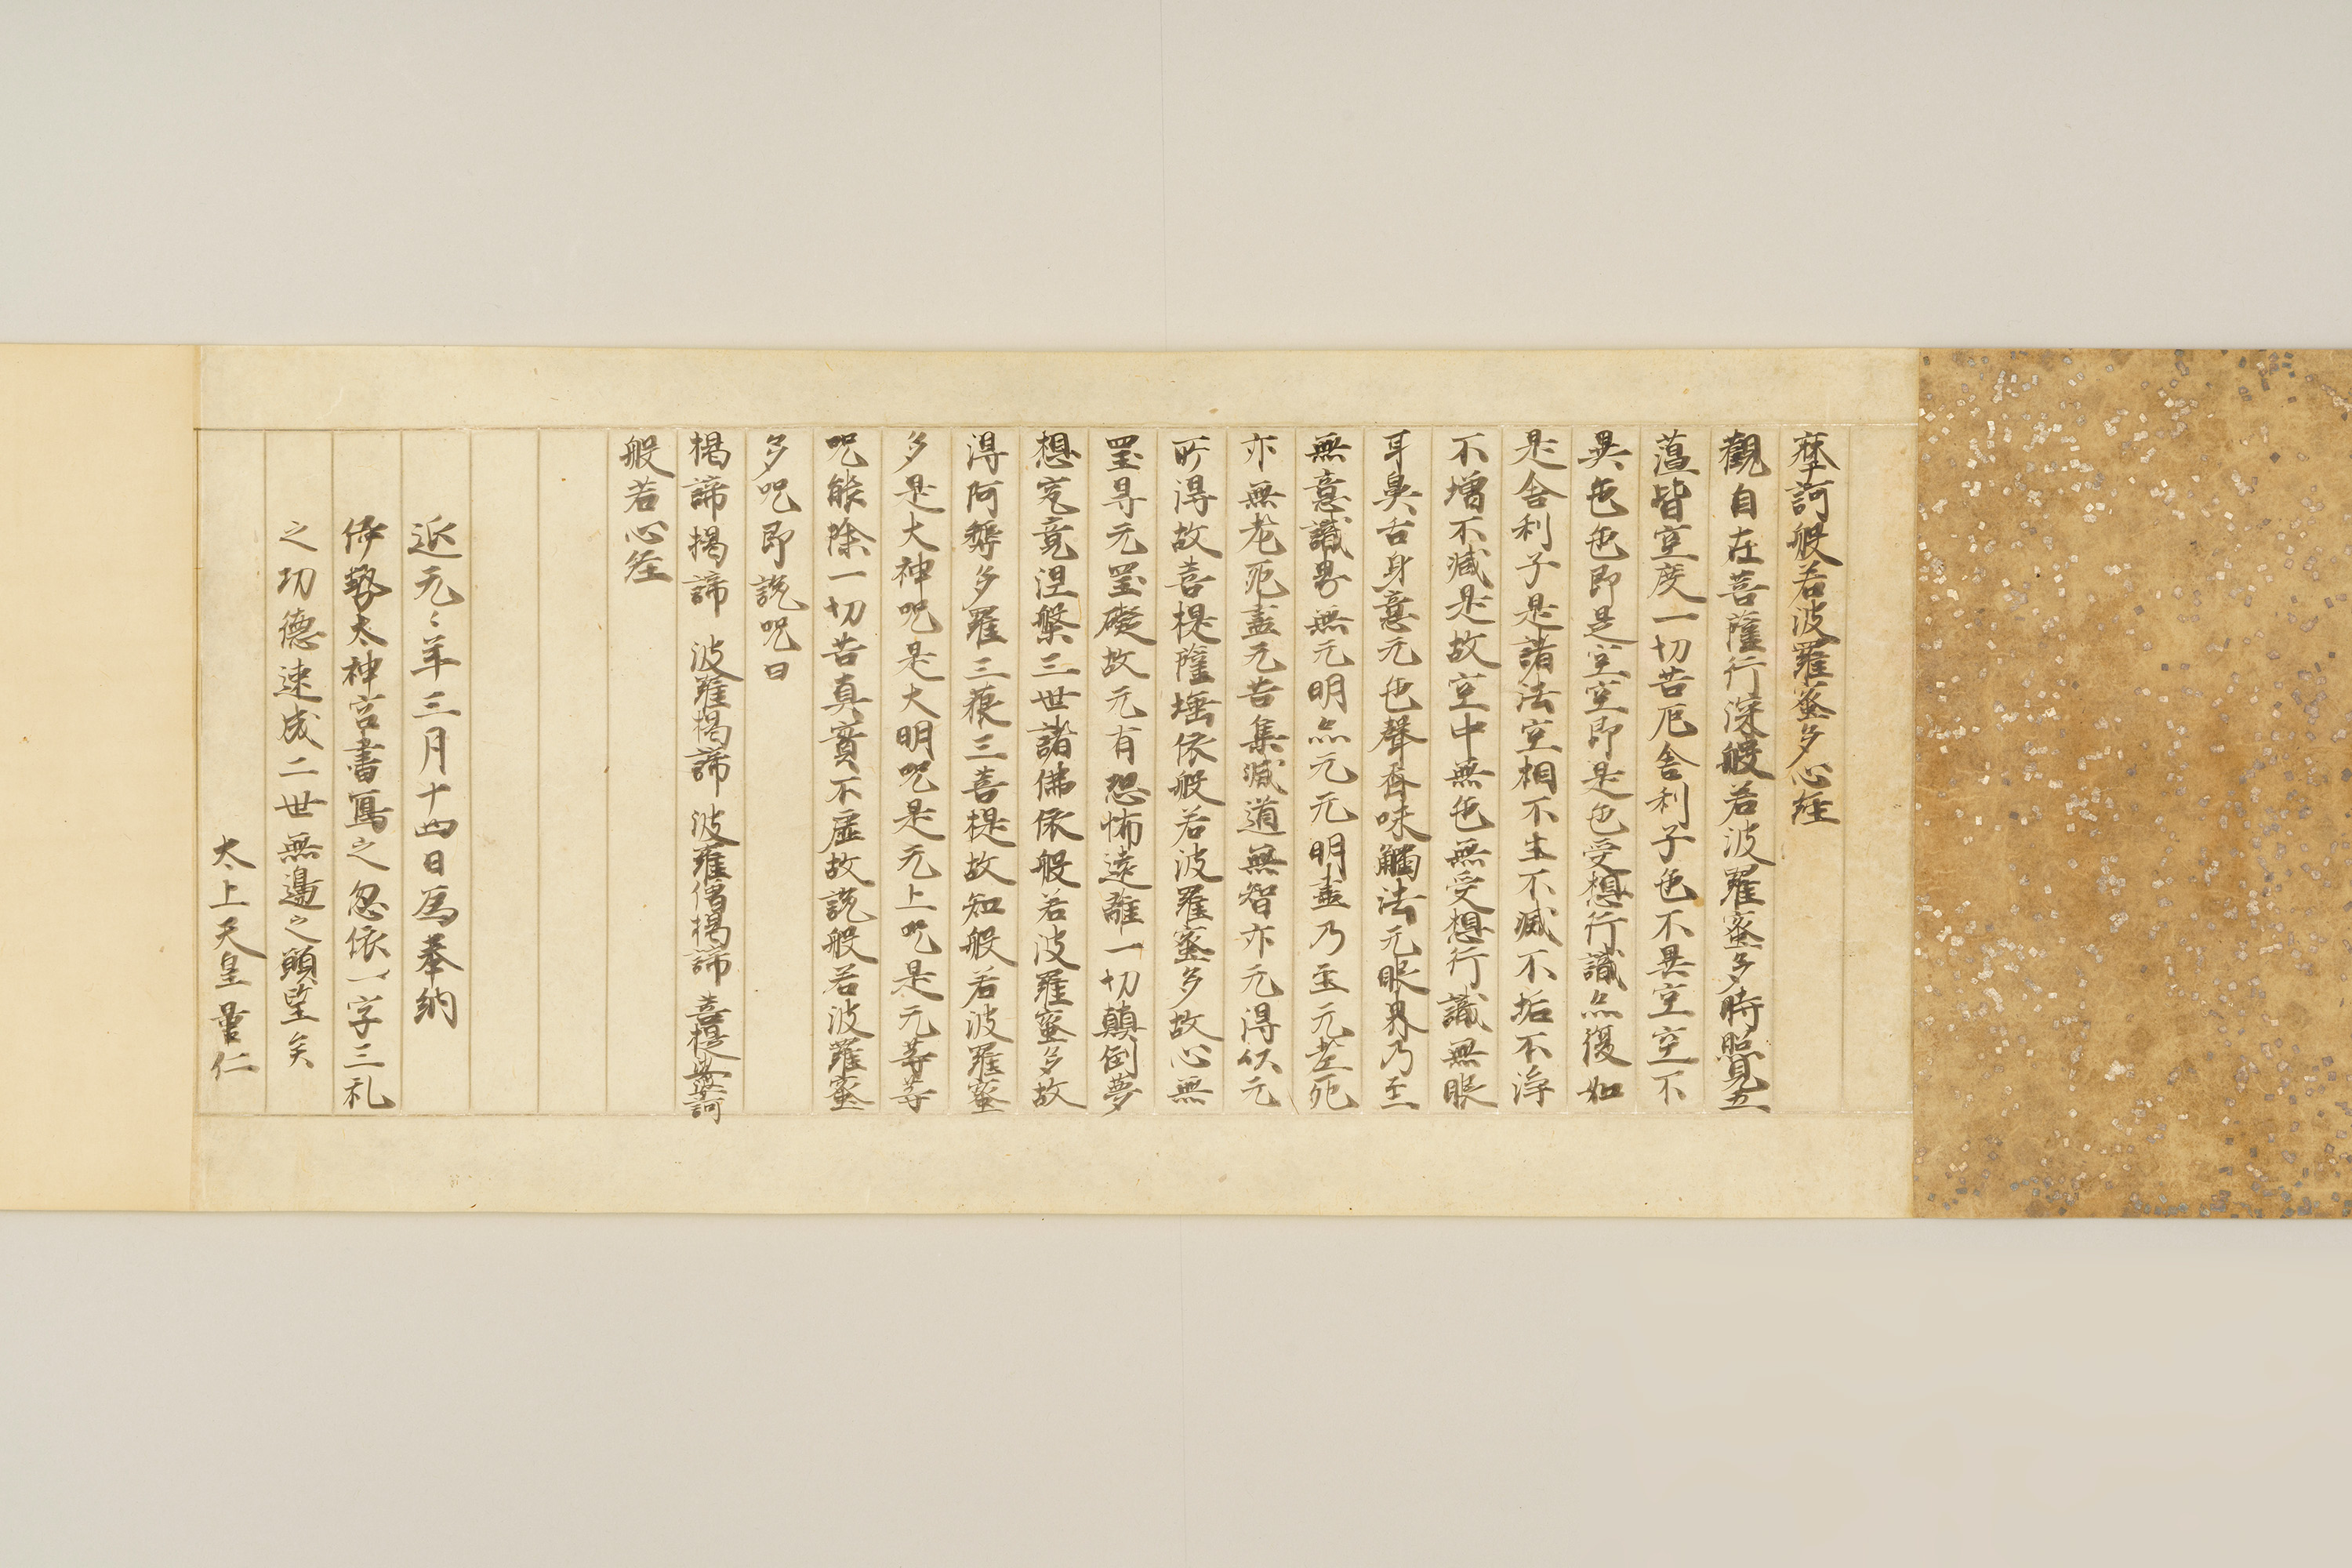 摩訶般若波羅蜜多心経
觀自在菩薩行深般若波羅蜜多時照見五
薀皆空度一切苦厄舎利子色不異空空不
異色色即是空空即是色受想行識亦復如
是舎利子是諸法空相不生不滅不垢不浄
不増不減是故空中無色無受想行識無眼
耳鼻舌身意无色聲香味觸法无眼界乃至
無意識界無无明亦无无明盡乃至无老死
亦無老死盡无苦集滅道無智亦无得以无
所得故菩提薩埵依般若波羅蜜多故心無
罣㝵无罣礙故无有恐怖遠離一切顛倒夢
想究竟涅槃三世諸佛依般若波羅蜜多故
得阿耨多羅三藐三菩提故知般若波羅蜜
多是大神呪是大明呪是无上呪是无等等
呪能除一切苦真實不虚故説般若波羅蜜
多呪即説呪曰
揭諦揭諦 波羅揭諦 波羅僧揭諦 菩提娑婆訶
般若心経
延元〻年三月十四日為奉納
伊勢太神宮書寫之忽依一字三礼
之功徳速成二世無邊之願望矣
太上天皇量仁